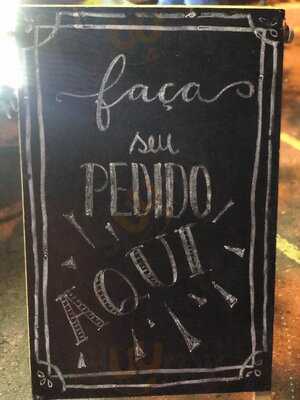 faça
seu
PEDIDO
AQUI